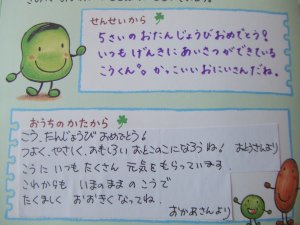 せんせいから
5さいのおたんじょうびおめでとう!
いつもげんきにあいさつができている
こうくん。かっこいいおにいさんだね。
おうちのかたから
こう、たんじょうび おめでとう!
つよく、やさしく、おもしろい おとこのこになろうね! おとうさんより
こうに いつも たくさん 元気を もらっています
これからも いまのままの こうで
たくましく おおきくなってね。
おかあさんより